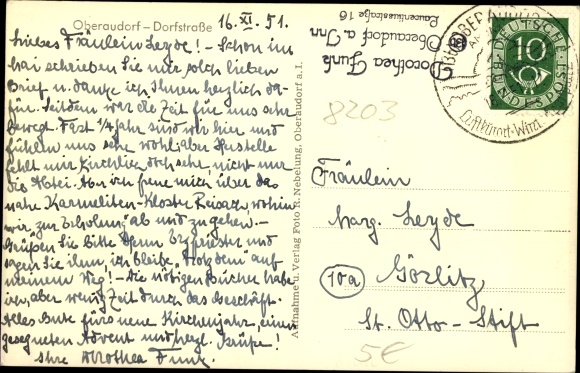 Oberaudorf – Dorfstraße 16. XI. 51.
Liebes Fräulein Leyde! – Schon im
Mai schrieben Sie mir solch lieben
Brief u. danke ich Ihnen herzlich da-
für. Seitdem war die Zeit für uns sehr
bewegt. Fast 1/4 Jahr sind wir hier und
fühlen uns sehr wohl, aber
fehlt mir kirchlich doch sehr, nicht nur
die Abtei. Aber ich freue mich über das
nahe Karmeliten-Kloster Reisach, wohin
wir, zur Erholung ab und zu gehen. –
Grüßen Sie bitte Herrn Erzpriester und
sagen Sie ihm, ich bleibe "trotzdem" auf
meinem Weg! – Die nötigen Bücher habe
ich, aber wenig Zeit durch das Geschäft.
Alles Gute fürs neue Kirchenjahr, einen
gesegneten Advent und herzl. Grüße!
Ihre Dorothea Funk.
Aufnahme u. Verlag Foto R. Nebelung, Oberaudorf a. I.
Dorothea Funk
Oberaudorf a. Inn
Rosenheimerstraße 16
DEUTSCHE BUNDESPOST
10
Luftkurort
8203
Fräulein
Marg. Leyde
10a Görlitz
St. Otto-Stift
5€